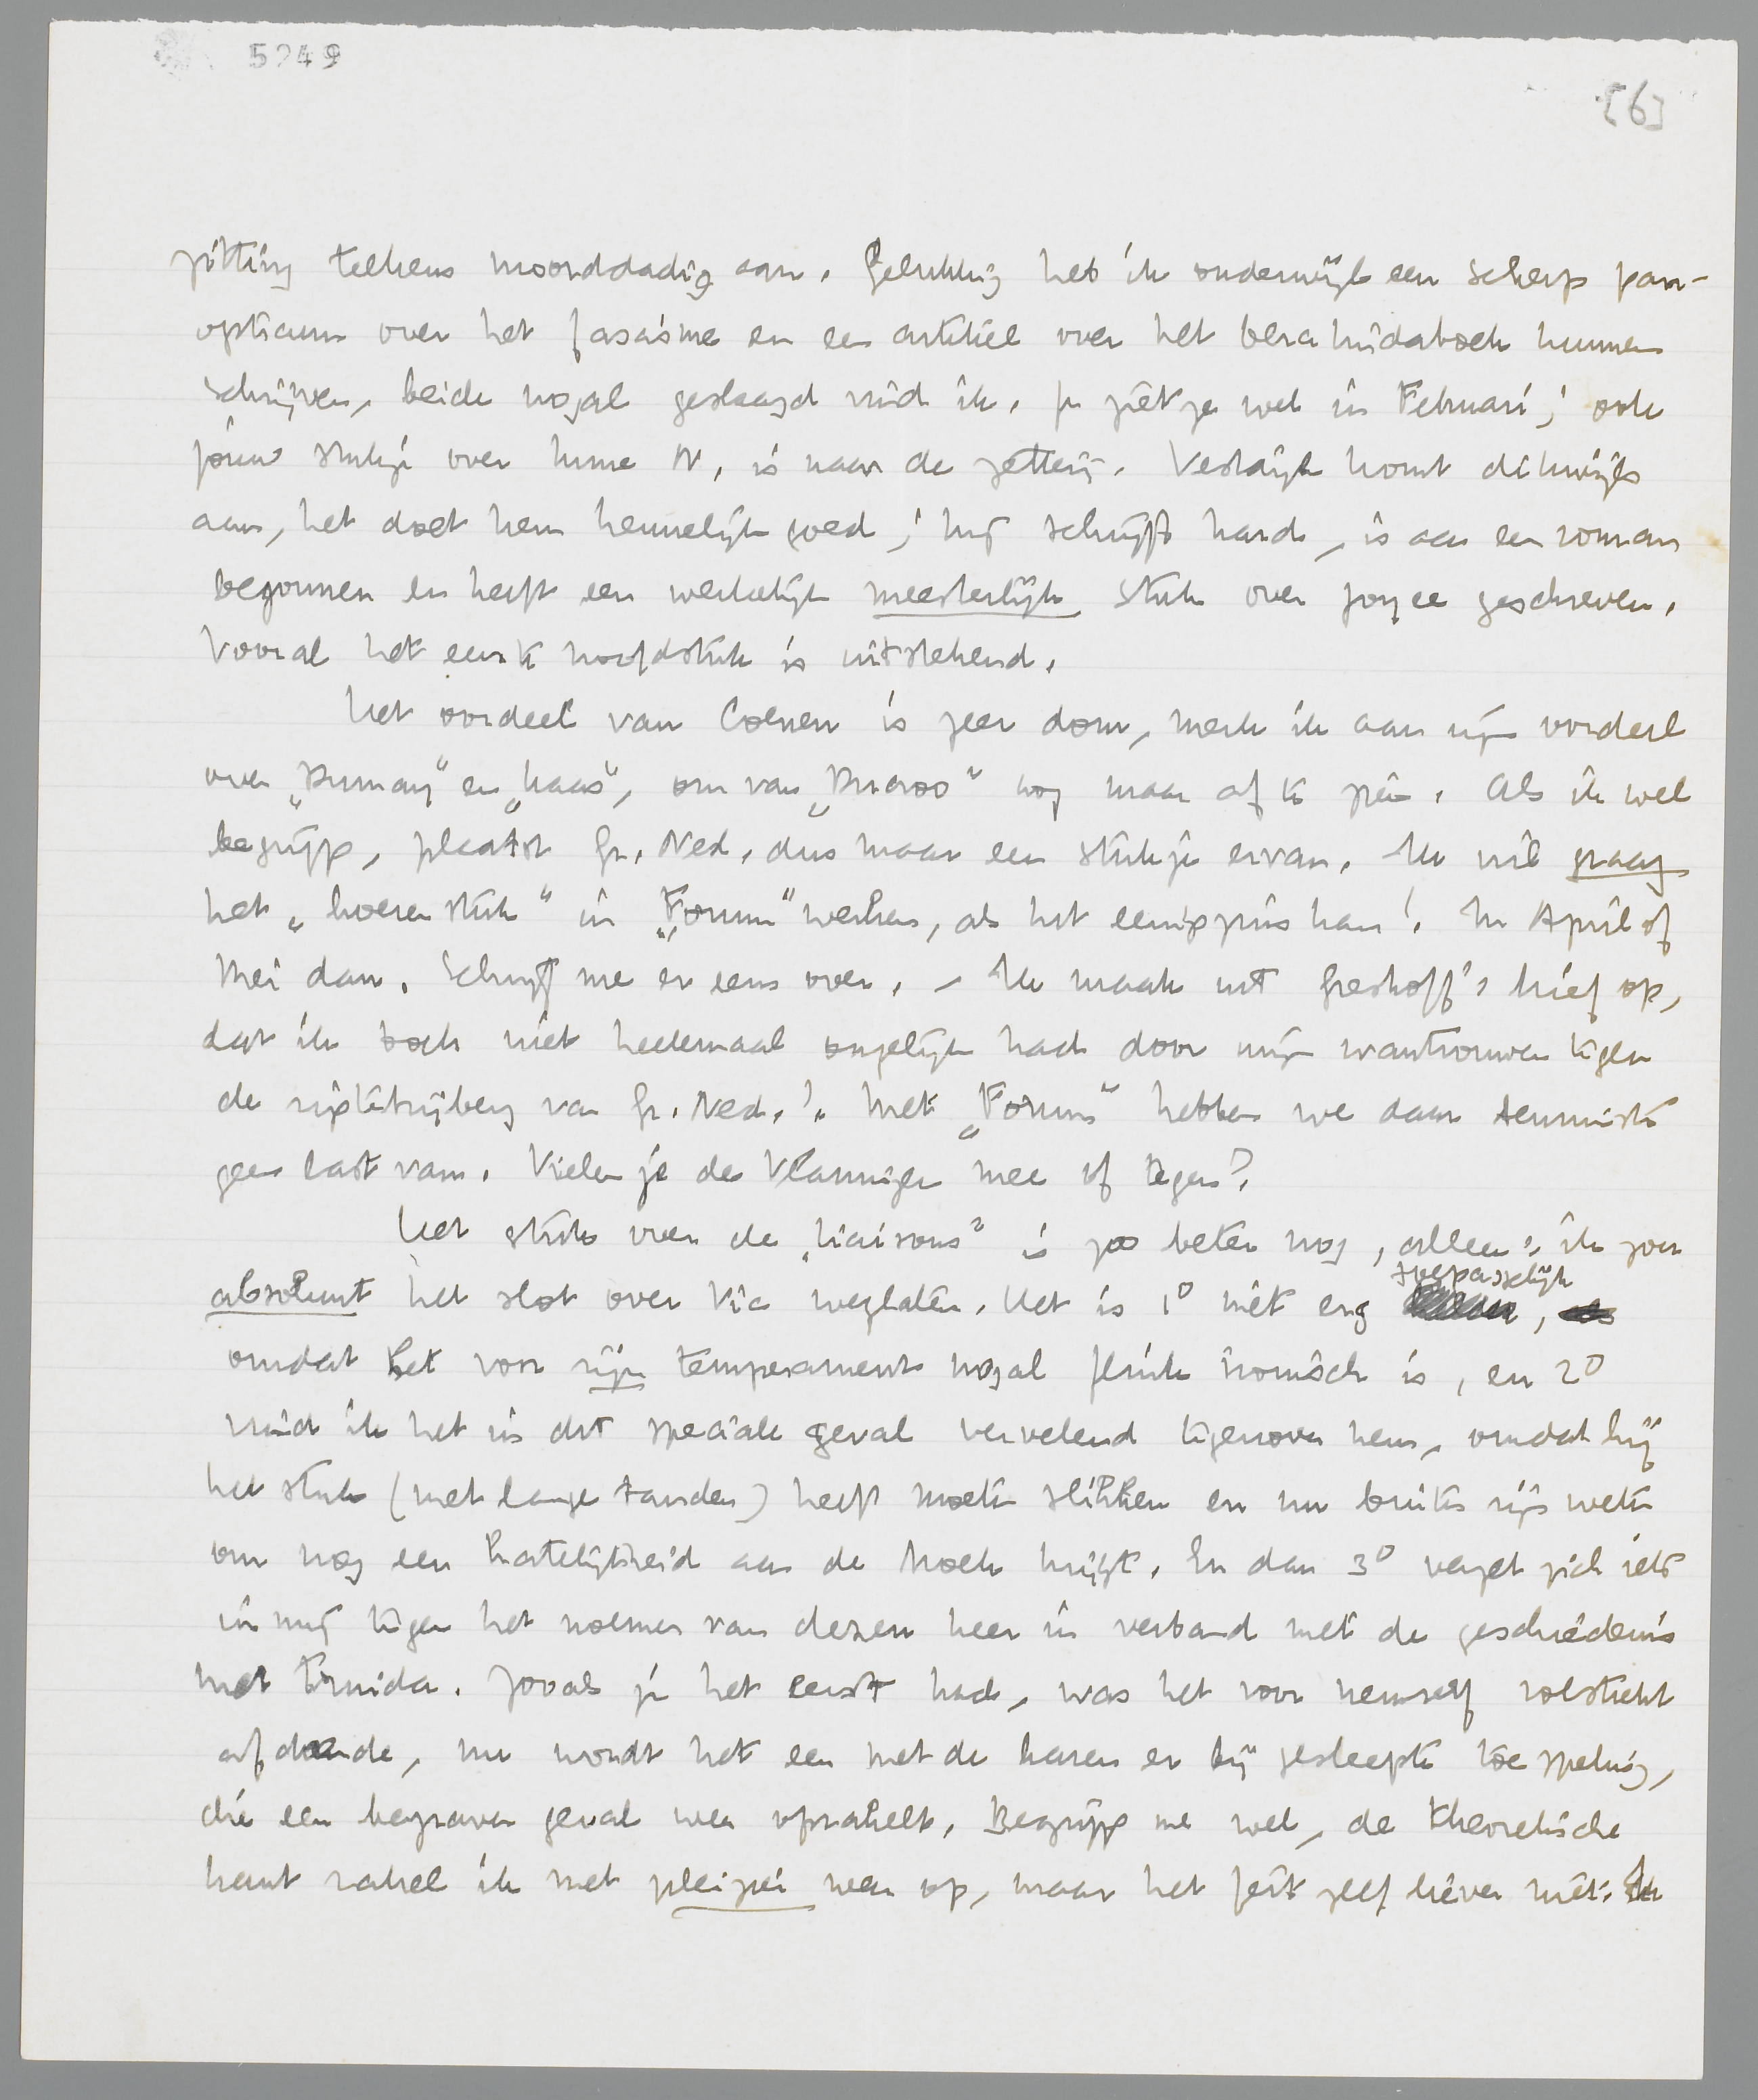 5249
[6]
zitting telkens moorddadig aan. Gelukkig heb ik onderwijl een scherp pan-
opticum over het fascisme en een artikel over het Vera kuidaboek kunnen
schrijven, beide nogal geslaagd vind ik. Je ziet ze wel in Februari; ook
jouw stukje over kunne N. is naar de zetterij. Vestdijk komt dikwijls
aan, het doet hem kennelijk goed; hij schrijft hard, is aan een roman
begonnen en heeft een werkelijk meesterlijk stuk over Joyce geschreven.
Vooral het eerste hoofdstuk is uitstekend.
Het oordeel van Coenen is zeer dom, merk ik aan zijn oordeel
over „Dumay" en „Haas", om van „Ducroo" nog maar af te zien. Als ik wel
begrijp, plaatst Gr. Ned. dus maar een stukje ervan. Ik wil graag
het „hoerenstuk" in „Forum" werken, als het eenigszins kan! In April of
Mei dan. Schrijf me er eens over. – Ik maak uit Greshoff's brief op,
dat ik toch niet heelemaal ongelijk had door mijn wantrouwen tegen
de mistdrijberij van Gr. Ned.! Met „Forum" hebben we daar tenminste
geen last van. Vielen je de Vlamingen mee of tegen?
Het stuk over de „Liaisons" is zoo beter nog, alleen: ik zou
absoluut het slot over Vic weglaten. Het is 1° niet erg toepasselijk,
omdat het voor zijn temperament nogal flink ironisch is, en 2°
vind ik het in dit speciale geval vervelend tegenover hem, omdat hij
het stuk (met lange tanden) heeft moeten slikken en nu buiten zijn weten
om nog een hatelijkheid aan de broek krijgt. En dan 3° verzet zich iets
in mij tegen het noemen van dezen heer in verband met de geschiedenis
met Truida. Zooals je het eerst had, was het voor hemzelf volstrekt
afdoende, nu wordt het een met de haren er bij gesleepte toespeling,
die een begraven geval weer oprakelt. Begrijp me wel, de theoretische
kant rakel ik met pleizier weer op, maar het feit zelf liever niet. Ik